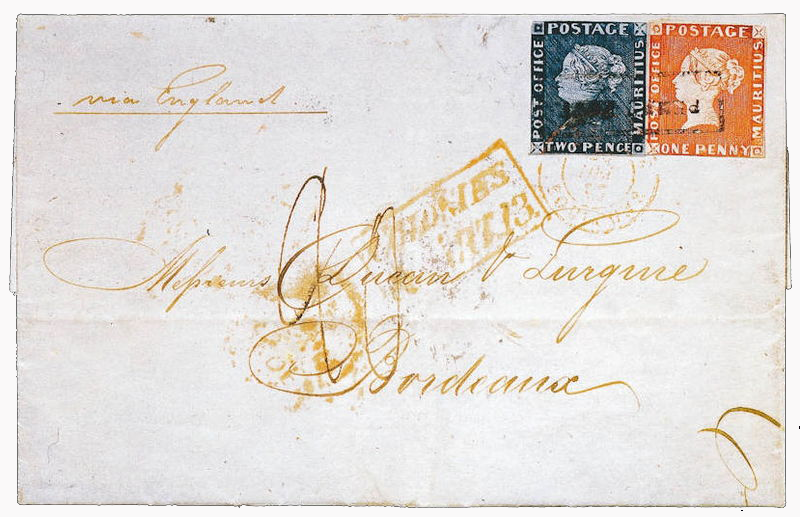 POSTAGE
POST OFFICE
MAURITIUS
TWO PENCE
POSTAGE
POST OFFICE
MAURITIUS
ONE PENNY
via England
Messieurs Ducan & Lurguie
Bordeaux